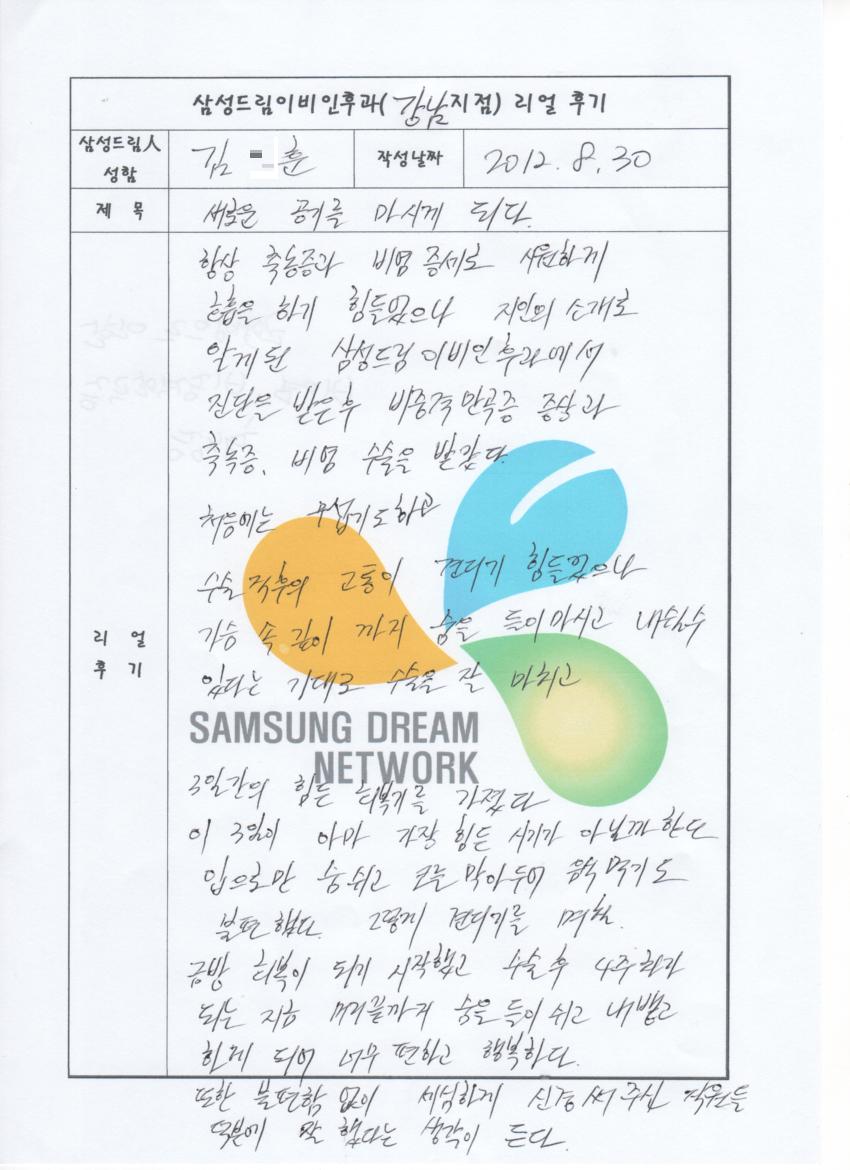 삼성드림이비인후과(강남지점) 리얼 후기
삼성드림人 성함 김 훈 작성날짜 2012. 8. 30
제 목 새로운 공기를 마시게 되다.
항상 축농증과 비염 증세로 시원하게
호흡을 하기 힘들었으나 지인의 소개로
알게된 삼성드림이비인후과에서
진단을 받은후 비중격만곡증 증상과
축농증, 비염 수술을 받았다.
처음에는 무섭기도하고
수술 직후의 고통이 견디기 힘들었으나
리 얼 후 기
가슴 속 깊이 까지 숨을 들이마시고 내쉴수
있다는 기대로 수술을 잘 마치고
SAMSUNG DREAM
NETWORK
3일간의 힘든 회복기를 가졌다
이 3일이 아마 가장 힘든 시기가 아닐까 한다
입으로만 숨쉬고 코를 막아두어 음식 먹기도
불편했다. 그렇게 견디기를 며칠.
금방 회복이 되기 시작했고 수술후 4주차가
되는 지금 머리끝까지 숨을 들이 쉬고 내뱉고
하게 되어 너무 편하고 행복하다.
또한 불편함 없이 세심하게 신경써주신 직원들
덕분에 잘 했다는 생각이 든다.